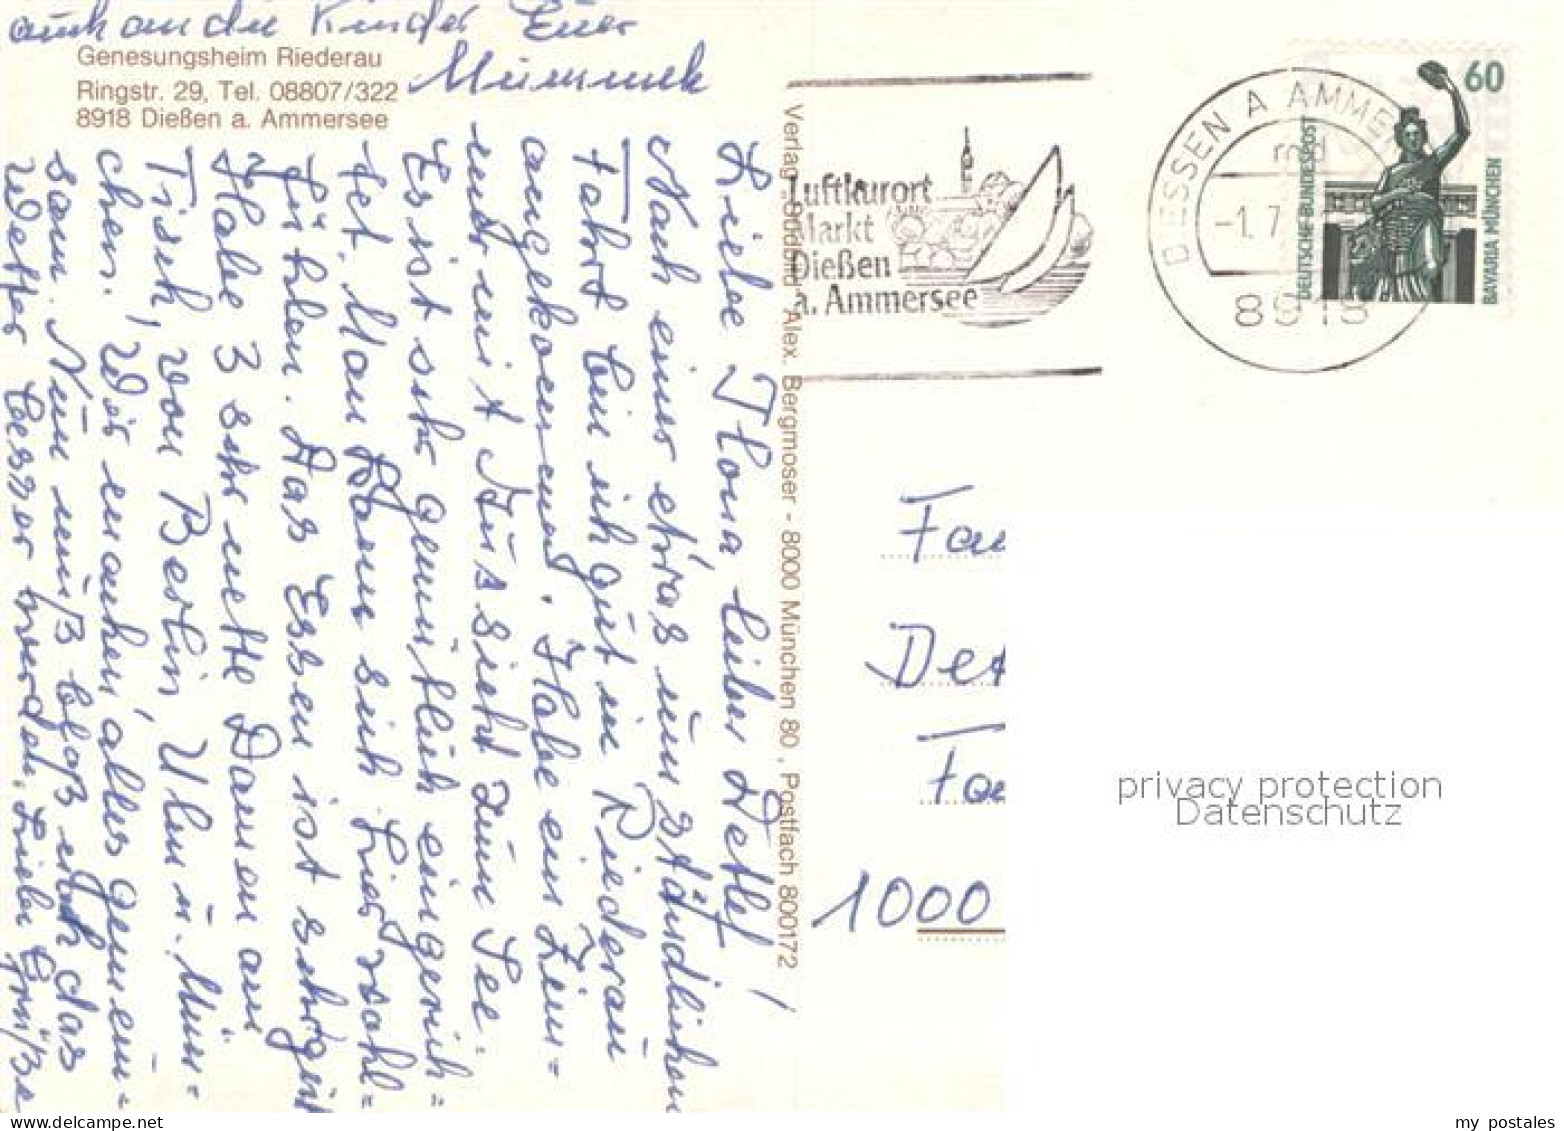 auch an die Kinder Euer
Mümmek
Genesungsheim Riederau
Ringstr. 29, Tel. 08807/322
8918 Dießen a. Ammersee
Liebe Ilona, lieber Detlef!
Nach einer etwas umständlichen
Fahrt bin ich gut in Riederau
angekommen. Habe ein Zim=
mer mit Aussicht zum See.
Es ist sehr gemütlich eingerich=
tet. Man kann sich hier wohl=
fühlen. Das Essen ist sehr gut
Habe 3 sehr nette Damen am
Tisch, von Berlin, Ulm u. Mün=
chen. Wir machen alles gemein=
sam. Nun muß bloß noch das
Wetter besser werden. Liebe Grüße
Verlag Südbild Alex. Bergmoser - 8000 München 80, Postfach 800172
Luftkurort
Markt
Dießen
a. Ammersee
DIESSEN A AMMER
md
-1.7
8918
60
DEUTSCHE BUNDESPOST
BAVARIA MÜNCHEN
Fam
Det
1000
privacy protection
Datenschutz
my postales